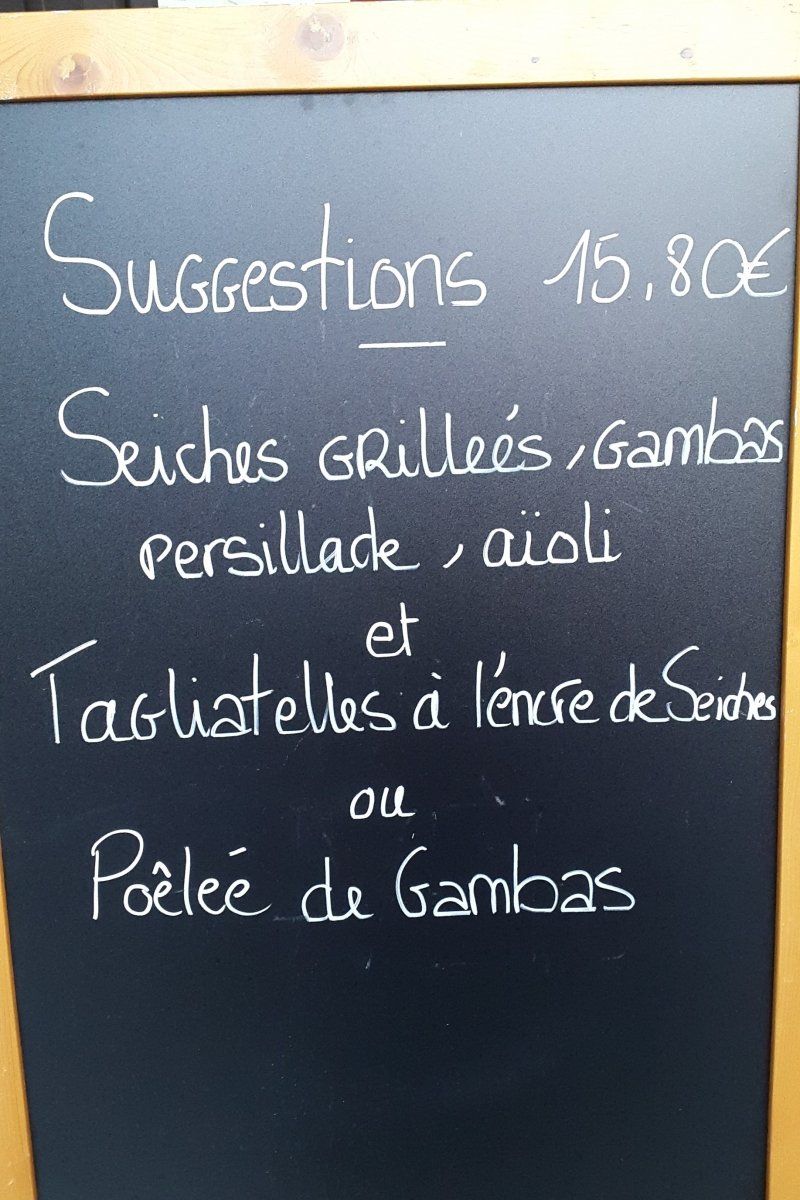 Suggestions 15,80€
Seiches Grilleés, Gambas
persillade, aïoli
et
Tagliatelles à l'encre de Seiches
ou
Poêleé de Gambas